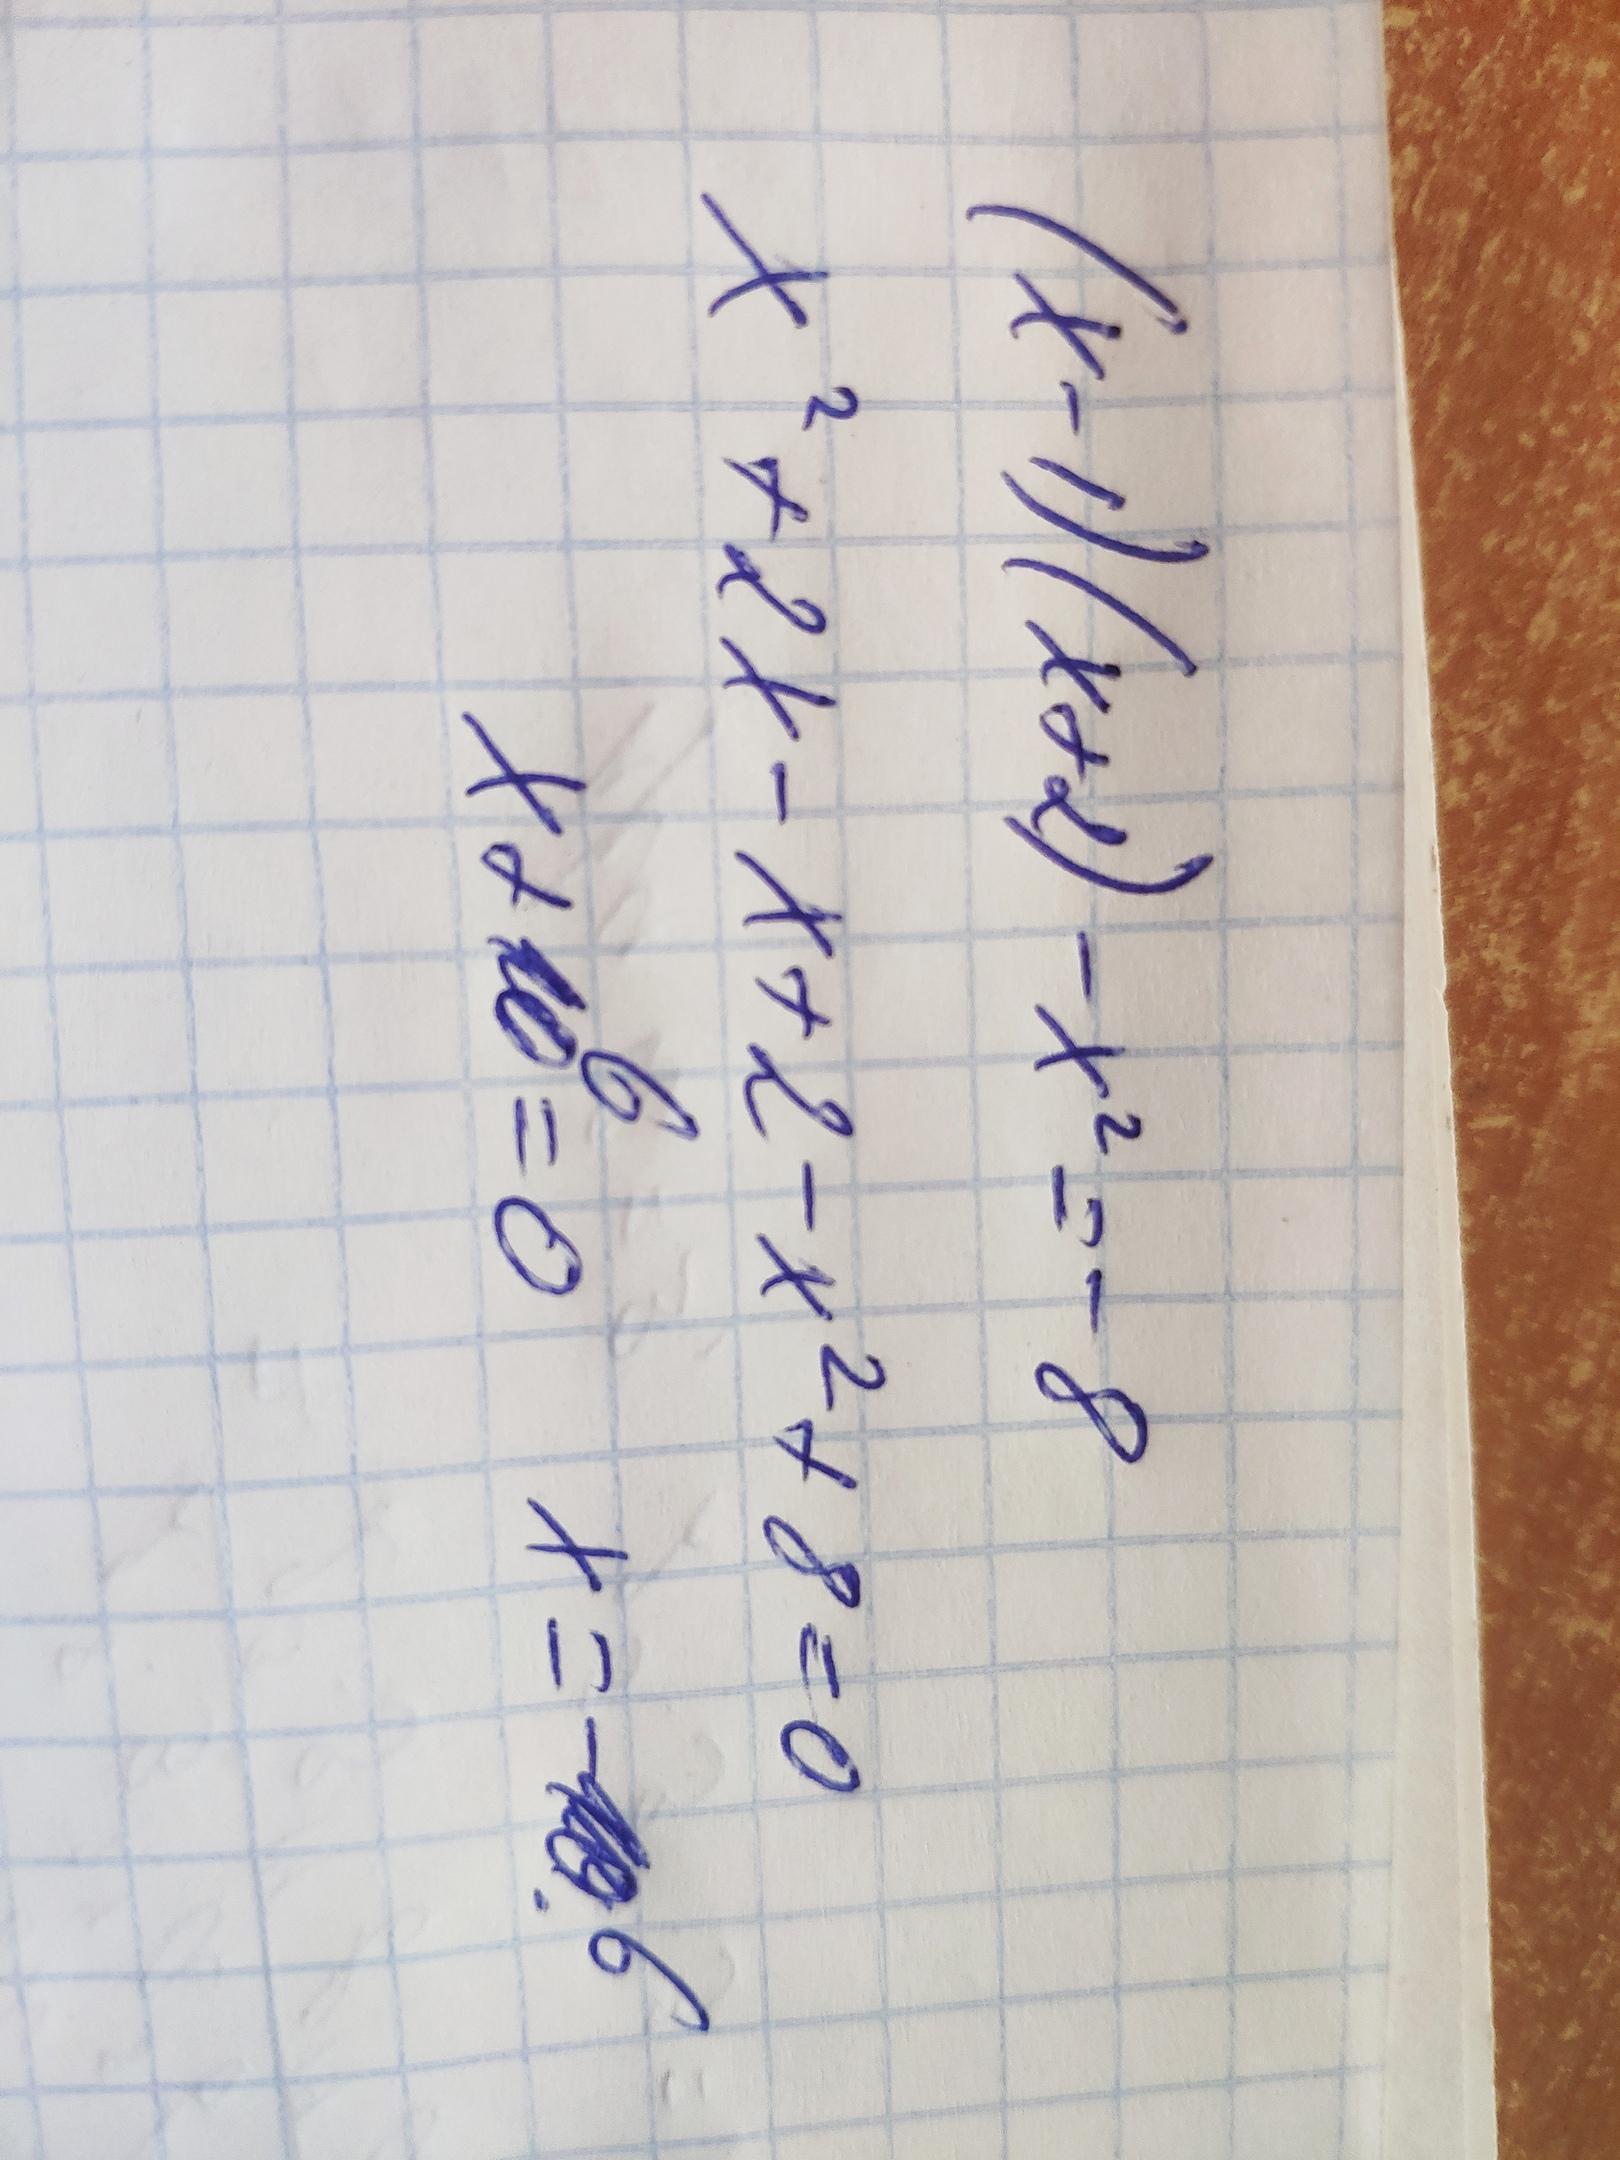 (x-1)(x+2) -x²=-8
x²+2x-x+2-x²+8=0
x+6=0 x=-6